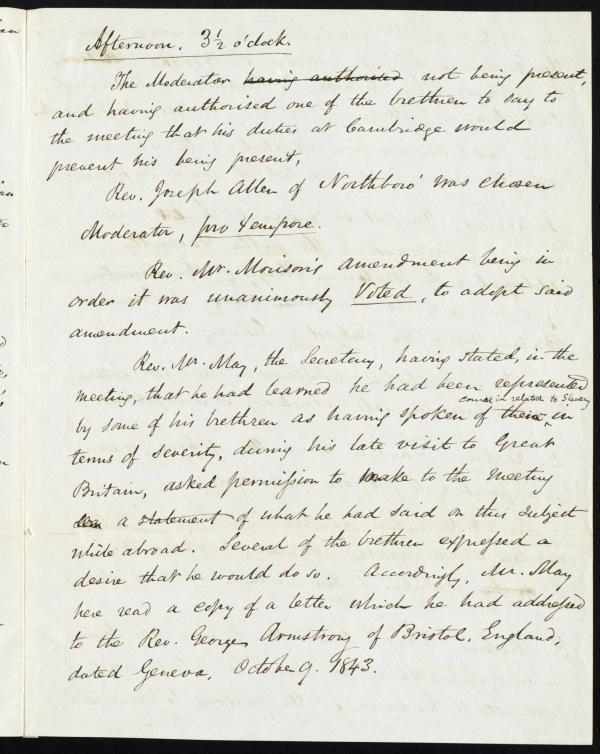 Afternoon. 3½ o'clock.
The Moderator having authorised not being present,
and having authorised one of the brethren to say to
the meeting that his duties at Cambridge would
prevent his being present,
Rev. Joseph Allen of Northboro' was chosen
Moderator, pro tempore.
Rev. Mr. Morison's amendment being in
order it was unanimously Voted, to adopt said
amendment.
Rev. Mr. May, the Secretary, having stated, in the
meeting, that he had learned he had been represented
course in relation to Slavery
by some of his brethren as having spoken of their in
terms of severity, during his late visit to Great
Britain, asked permission to make to the meeting
a statement of what he had said on this subject
while abroad. Several of the brethren expressed a
desire that he would do so. Accordingly, Mr. May
here read a copy of a letter which he had addressed
to the Rev. George Armstrong of Bristol, England,
dated Geneva, October 9. 1843.